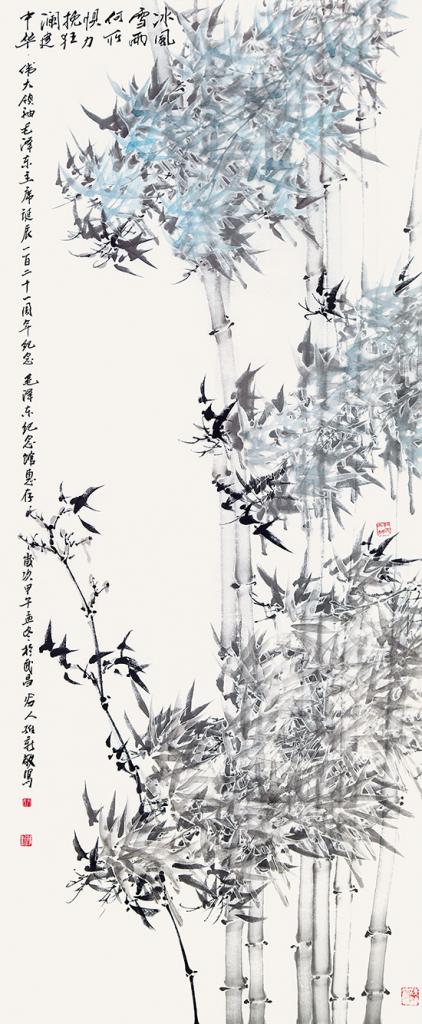 冰風
雪雨
何所
惧力
挽狂
瀾建
中华
伟大領袖毛澤东主席誕辰一百二十一周年纪念 毛澤东纪念馆惠存 歲次甲午孟冬於武昌 人 敬寫